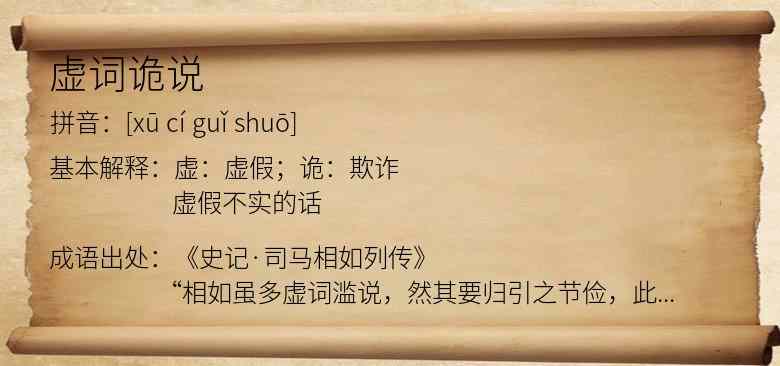 虚词诡说
拼音：[xū cí guǐ shuō]
基本解释：虚：虚假；诡：欺诈
虚假不实的话
成语出处：《史记·司马相如列传》
“相如虽多虚词滥说，然其要归引之节俭，此...